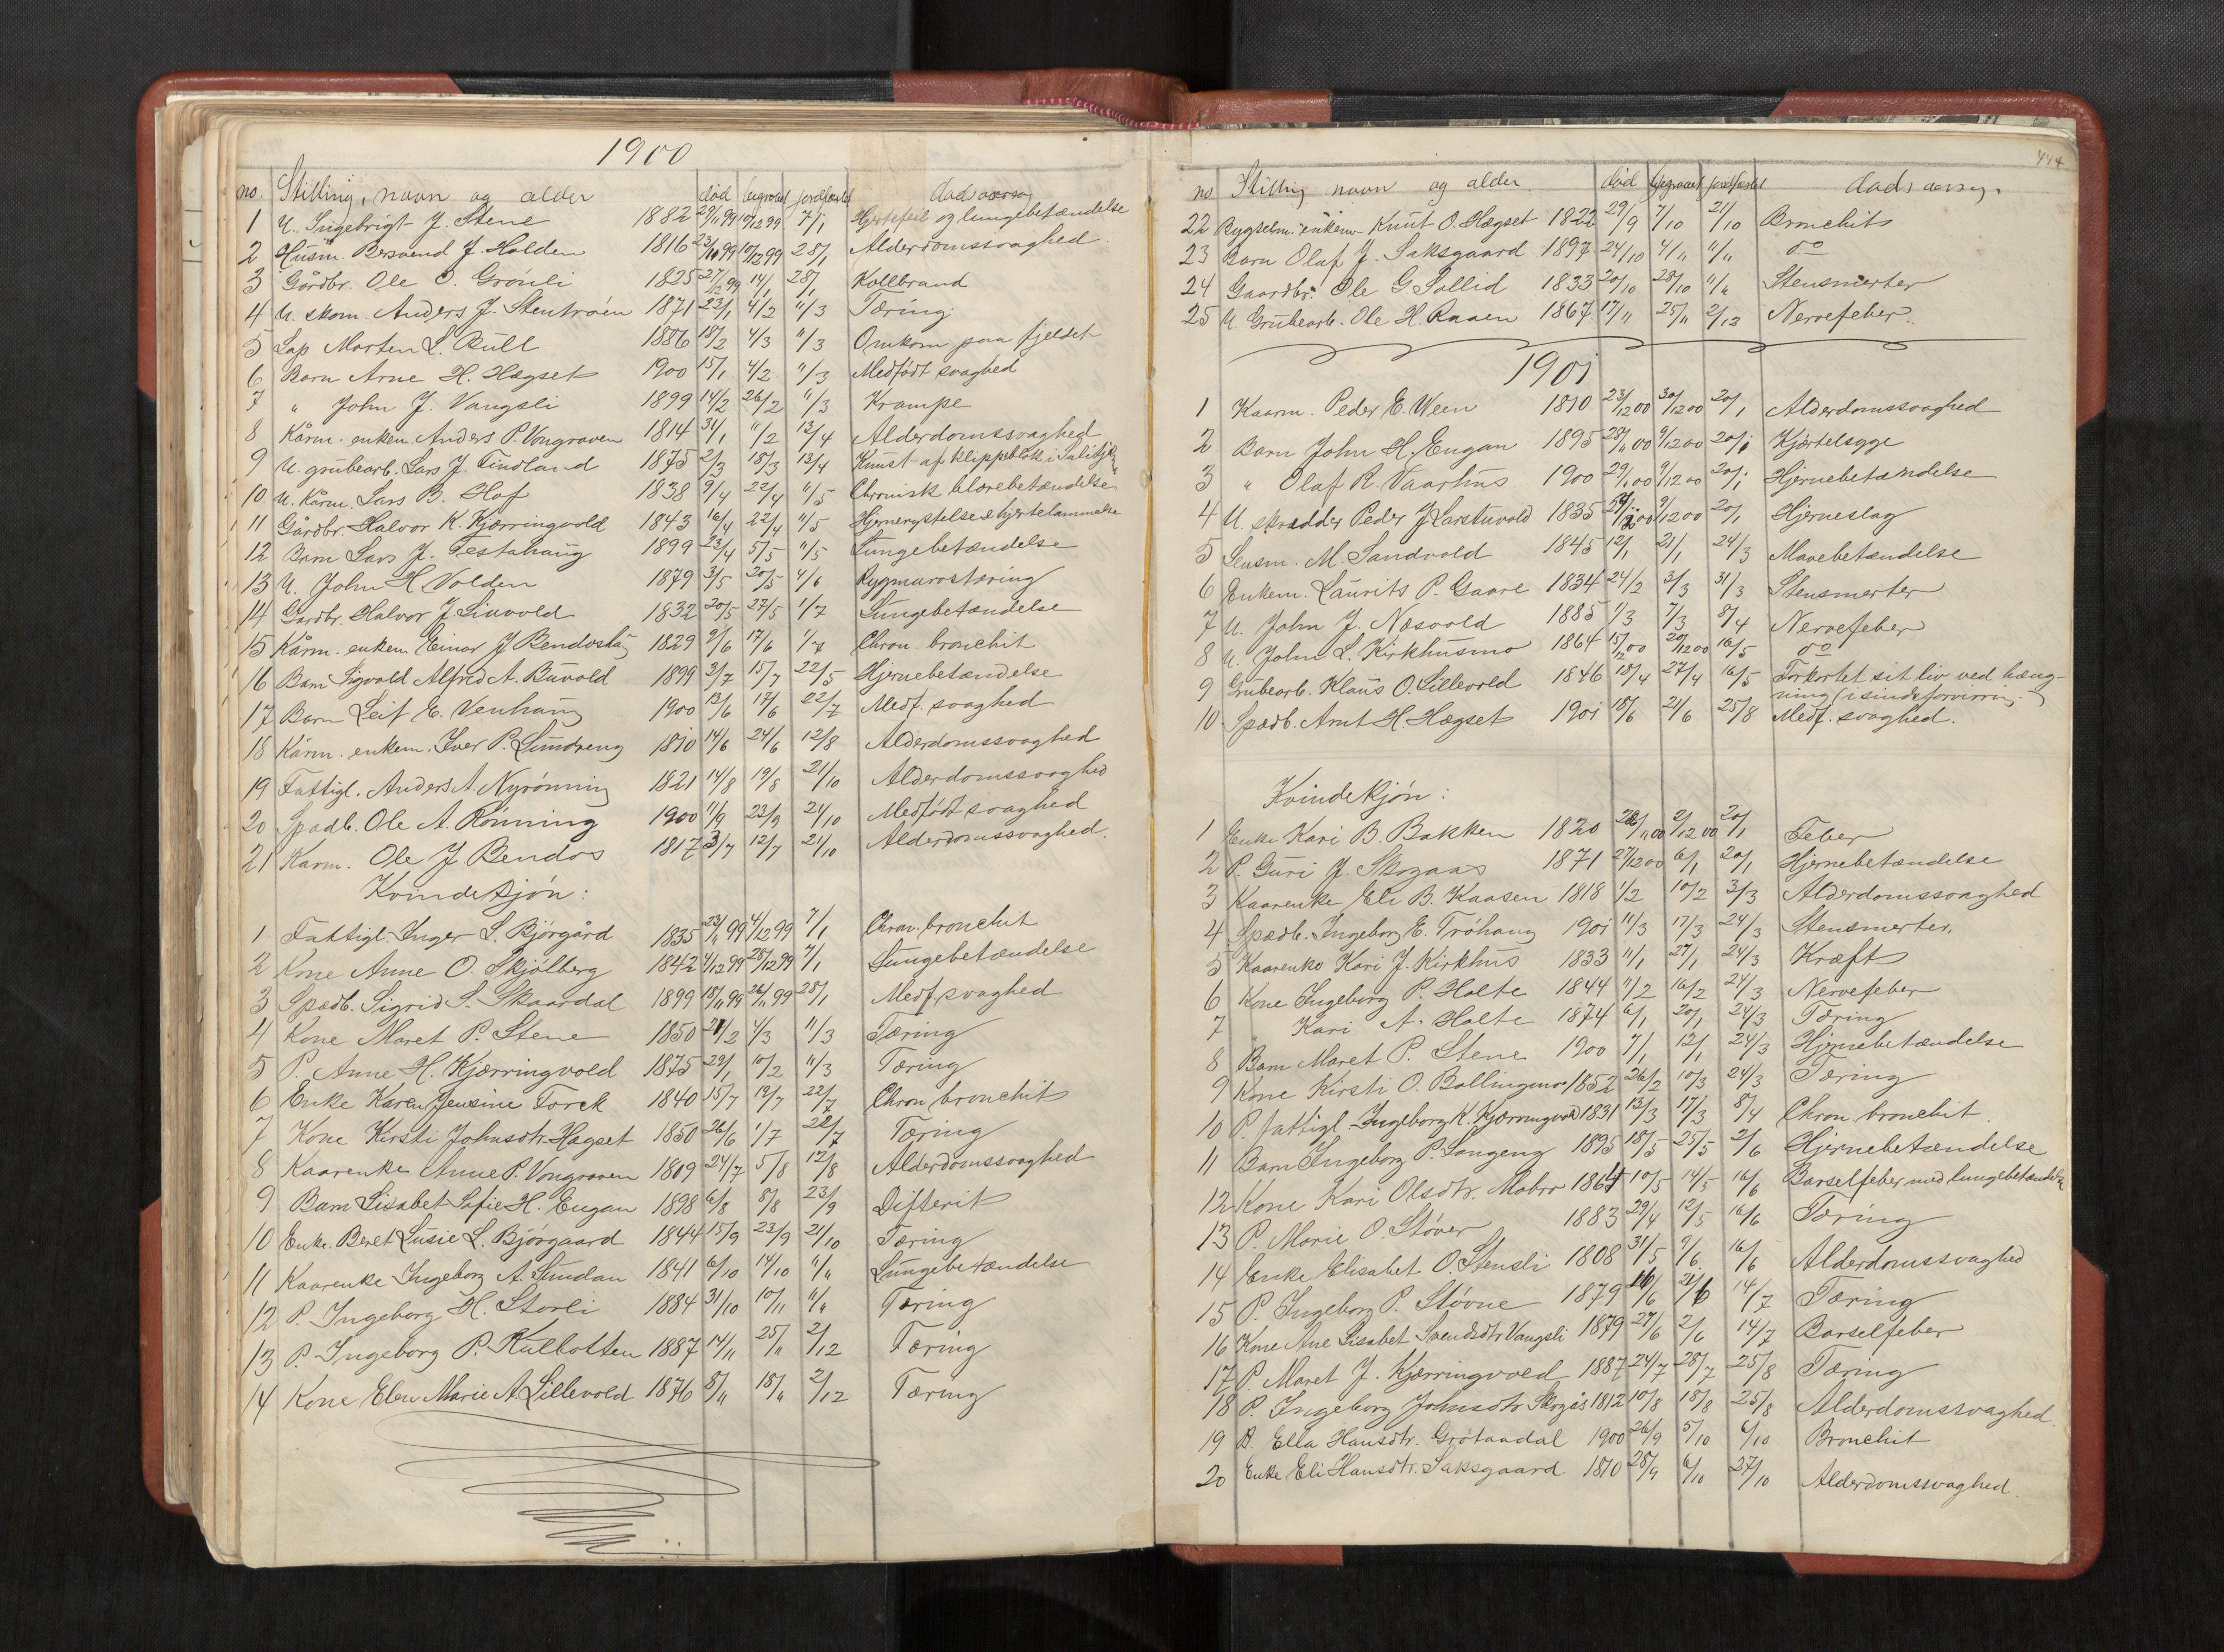 1900
no. Stilling, navn og alder død begravet jordfæstet dødsaarsag
1 U. Ingebrigt J. Stene 1882 29/11 99 10/12 99 7/1 Hjertefeil og lungebetændelse
2 Husm. Bersvend J. Holden 1816 23/11 99 10/12 99 28/1 Alderdomssvaghed
3 Gårdbr. Ole O. Grönli 1825 27/12 99 14/1 28/1 Kollbrand
4 U. skom. Anders J. Stentröen 1871 23/1 4/2 11/3 Tæring
5 Lap Morten L. Bull 1886 18/2 4/3 11/3 Omkom paa fjeldet
6 Barn Arne H. Hægset 1900 15/1 4/2 11/3 Medfödt svaghed
7 " John J. Vangsli 1899 14/2 26/2 11/3 Krampe
8 Kårm. enkem. Anders P. Vongraven 1814 31/1 11/2 13/4 Alderdomssvaghed
9 U. grubearb. Lars J. Tindland 1875 2/3 18/3 13/4 Knust af klippeblok i
10 U. Kårm. Lars B. Hof 1838 9/4 22/4 11/5 Chronisk blærebetændelse
11 Gårdbr. Halvor K. Kjærringvold 1843 16/4 22/4 11/5 Hjernerystelse & hjertelammelse
12 Barn Lars J. Testahaug 1899 23/4 5/5 11/5 Lungebetændelse
13 U. John H. Volden 1879 3/5 20/5 4/6 Rygmarvstæring
14 Gardbr. Halvor J. Liavold 1832 20/5 27/5 1/7 Lungebetændelse
15 Kårm. enkem Einar J Bendos 1829 9/6 17/6 1/7 Chron. bronchit
16 Barn Sigvald Alfred A. Buvold 1899 3/7 15/7 22/5 Hjernebetændelse
17 Barn Leif E. Venhaug 1900 13/6 17/6 22/7 Medf. svaghed
18 Kårm. enkem. Iver P. Lundreng 1810 14/6 24/6 12/8 Alderdomssvaghed
19 Fattigl. Anders A. Nyrönning 1821 14/8 19/8 21/10 Alderdomssvaghed
20 Spædb. Ole A. Rönning 1900 11/9 23/9 21/10 Medfödt svaghed
21 Karm. Ole J Bendos 1817 3/7 12/7 21/10 Alderdomssvaghed.
Kvindekjön:
1 Fattigl. Inger L. Bjørgård 1835 23/11 99 4/12 99 7/1 Chron. bronchit
2 Kone Anne O. Skjölberg 1842 4/12 99 28/12 99 7/1 Lungebetændelse
3 Spædb. Sigrid S. Skaardal 1899 18/11 99 26/11 99 28/1 Medf. svaghed
4 Kone Maret P. Stene 1850 21/2 4/3 11/3 Tæring
5 P. Anne H. Kjærringvold 1875 29/1 10/2 11/3 Tæring
6 Enke Karen Jensine Torck 1840 15/7 19/7 22/7 Chron bronchit
7 Kone Kirsti Johnsdtr. Hægset 1850 26/6 1/7 22/7 Tæring
8 Kaarenke Anne P. Vongraven 1809 24/7 5/8 12/8 Alderdomssvaghed
9 Barn Lisabet Sofie H. Eugan 1898 6/8 8/8 23/9 Difterit
10 Enke Beret Lusie L. Bjørgaard 1844 15/9 23/9 21/10 Tæring
11 Kaarenke Ingeborg A. Lundan 1841 6/10 14/10 11/11 Lungebetændelse
12 P. Ingeborg H. Storli 1884 31/10 10/11 11/11 Tæring
13 P. Ingeborg P. Kulbotten 1887 14/11 25/11 2/12 Tæring
14 Kone Elen Marie A. Lillevold 1876 8/11 18/11 2/12 Tæring
444
no Stilling navn og alder. død begravet jordfæstet dødsaarsag.
22 Rygselm. enkem Knut O. Hægset 1822 29/9 7/10 21/10 Bronchit
23 Barn Olaf J. Saksgaard 1897 24/10 4/11 11/11 do
24 Gaardbr. Ole G Sollid 1833 20/10 28/10 11/11 Stensmerter
25 U. Grubearb. Ole H. Raaen 1867 17/11 25/11 2/12 Nervefeber.
1901
1 Kaarm. Peder E. Ween 1810 23/12 00 30/12 00 20/1 Alderdomssvaghed
2 Barn John H. Eugan 1895 28/11 00 9/12 00 20/1 Kjertelsyge
3 " Olaf R. Vaarhus 1900 29/11 00 9/12 00 20/1 Hjernebetændelse
4 U. skrædder Peder J Larstuvold 1835 9/12 00 20/1 Hjerneslag
5 Lensm. M. Sandvold 1845 12/1 21/1 24/3 Mavebetændelse
6 Enkem. Laurits P. Gaare 1834 24/2 3/3 31/3 Stensmerter
7 U. John J. Næsvold 1885 1/3 7/3 8/4 Nervefeber
8 U. John L. Kirkhusmo 1864 15/12 00 20/12 00 16/5 do
9 Grubearb. Klaus O. Lillevold 1846 18/4 27/4 16/5 Forkortet sit liv ved hæng-
ning (i sindsforvirring.)
10 Spædb. Arnt H. Hægset 1901 18/6 21/6 25/8 Medf. svaghed.
Kvindekjön:
1 Enke Kari B. Bakken 1820 26/11 00 2/12 00 20/1 Feber
2 P. Guri J. Skogaas 1871 27/12 00 6/1 20/1 Hjernebetændelse
3 Kaarenke Eli B. Kaasen 1818 1/2 10/2 3/3 Alderdomssvaghed
4 Spædb. Ingeborg E. Tröhaug 1901 11/3 17/3 24/3 Stensmerter.
5 Kaarenke Kari J. Kirkhus 1833 11/1 27/1 24/3 Kræft
6 Kone Ingeborg P. Holte 1844 11/2 16/2 24/3 Nervefeber
7 " Kari A. Holte 1874 6/1 20/1 24/3 Tæring
8 Barn Maret P. Stene 1900 7/1 12/1 24/3 Hjernebetændelse
9 Kone Kirsti O. Bollingmo 1852 26/2 10/3 24/3 Tæring
10 P. fattigl. Ingeborg K. Kjærringvold 1831 13/3 17/3 8/4 Chron bronchit.
11 Barn Ingeborg P. Langeng 1895 18/5 25/5 2/6 Hjernebetændelse
12 Kone Kari Olsdtr. Mobro 1864 10/5 14/5 16/6 Barselfeber med lungebetændelse
13 P. Marie O. Støver 1883 29/4 12/5 16/6 Tæring
14 Enke Elisabet O. Stensli 1808 31/5 9/6. 16/6 Alderdomssvaghed
15 P. Ingeborg P. Stövne 1879 16/6 21/6 14/7 Tæring
16 Kone Ane Lisabet Svendsdtr Vangsli 1879 27/6 2/6 14/7 Barselfeber
17 P. Maret J. Kjærringvold 1887 24/7 28/7 25/8 Tæring
18 P. Ingeborg Johnsdtr Skogås 1812 10/8 18/8 25/8 Alderdomssvaghed.
19 B. Ella Hansdtr. Grötaadal 1900 26/9 5/10 6/10 Bronchit
20 Enke Eli Hansdtr. Saksgaard 1810 28/9 6/10 27/10 Alderdomssvaghed.